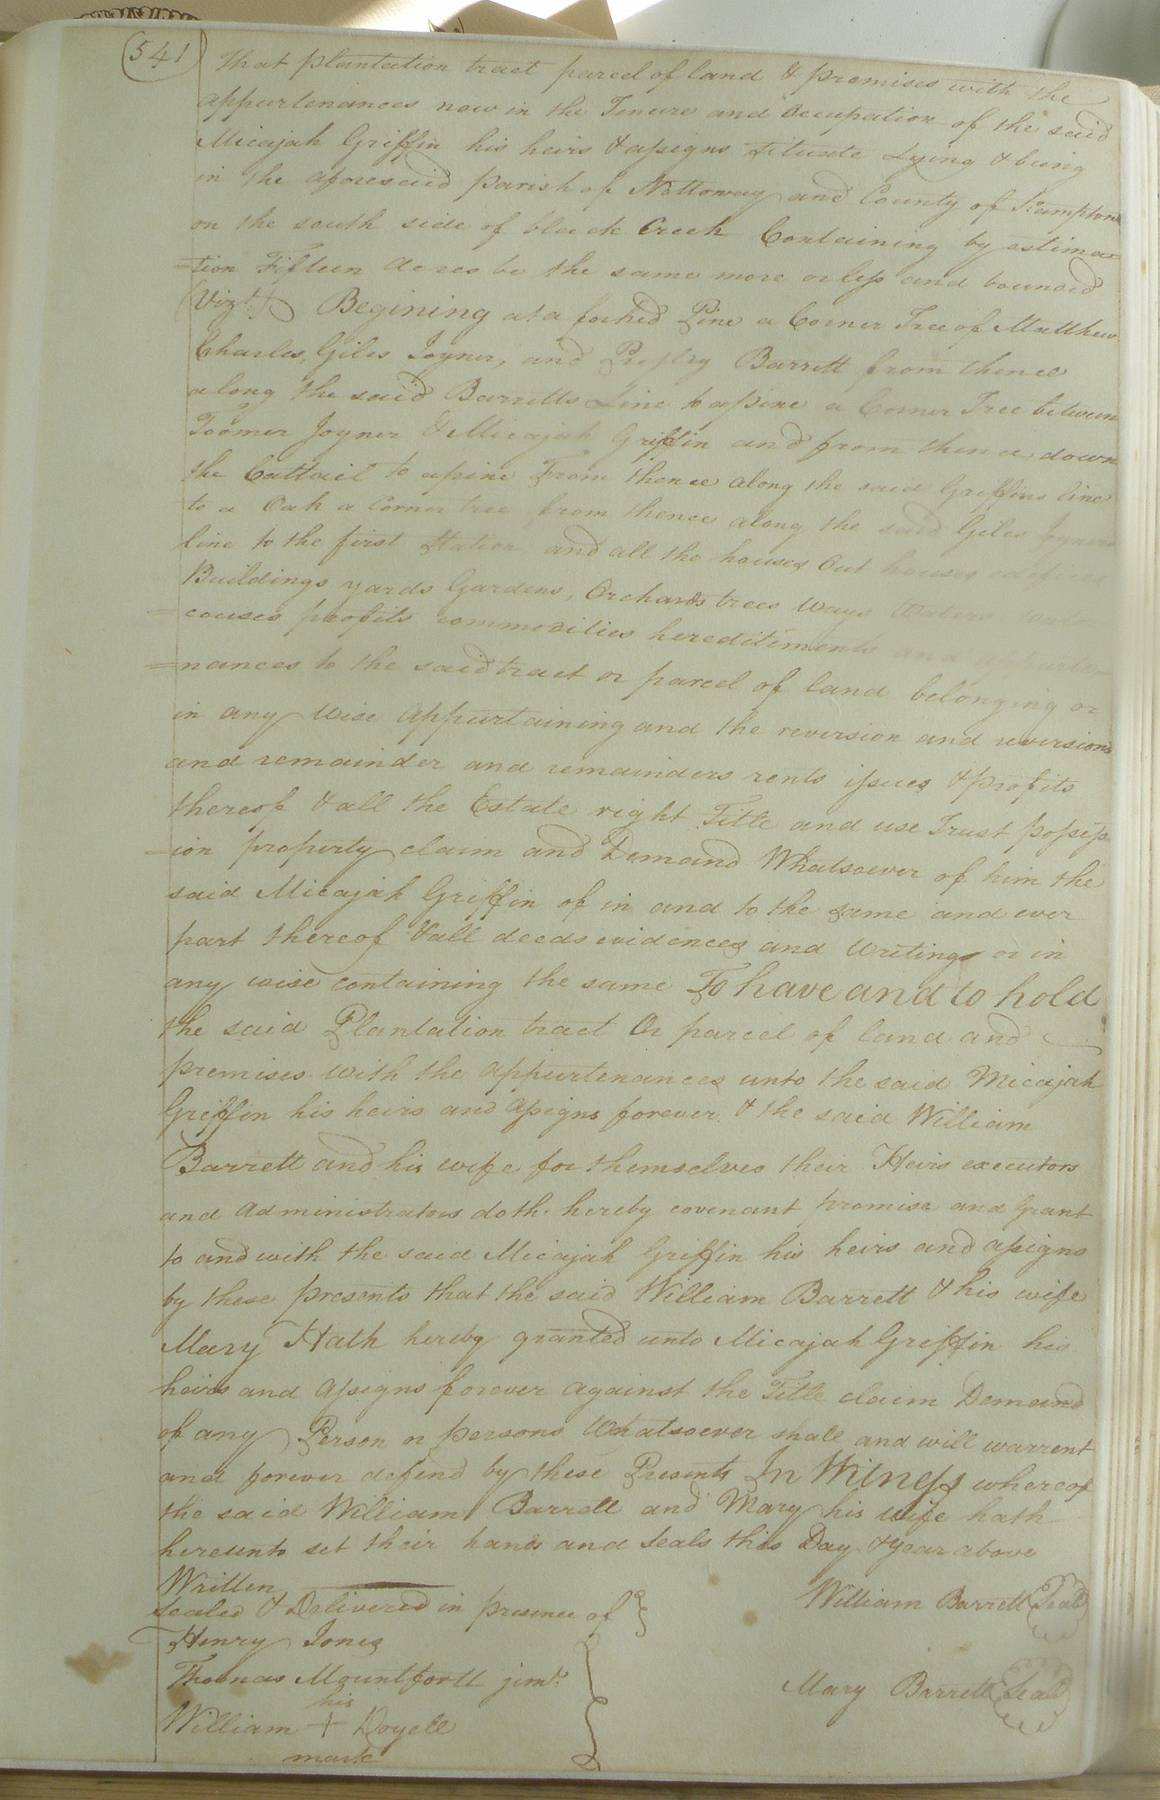 541
that plantation tract parcel of land & premises with the
appurtenances now in the Tenure and Occupation of the said
Micajah Griffin his heirs & assigns Situate Lying & being
in the aforesaid parish of Nottoway and County of S:ampton
on the south side of black Creek Containing by estima
=tion Fifteen Acres be the same more or less and bounded
(Vizt.) Begining at a forked Pine a Corner Tree of Matthew
Charles, Giles Joyner, and Presley Barrett from thence
along the said Barretts Line to a pine a Corner Tree between
Toomer Joyner & Micajah Griffin and from thence down
the Cattail to a pine From thence along the said Griffins line
to a Oak a Corner tree from thence along the said Giles Joyners
line to the first Station and all the houses Out houses
Buildings yards Gardens, Orchards trees Ways Waters water
=couses profits commodities hereditiments and appurte
=nances to the said tract or parcel of land belonging or
in any Wise Appurtaining and the reversion and reversions
and remainder and remainders rents issues & profits
thereof & all the Estate right Title and use Trust possess
=ion property claim and Demand Whatsoever of him the
said Micajah Griffin of in and to the same and ever
part thereof & all deeds evidences and Writings or in
any wise containing the same To have and to hold
the said Plantation tract Or parcel of land and
premises with the appurtenances unto the said Micajah
Griffin his heirs and Assigns forever. & the said William
Barrett and his wife for themselves their Heirs executors
and Administrators doth hereby covenant promise and Grant
to and with the said Micajah Griffin his heirs and assigns
by these presents that the said William Barrett & his wife
Mary Hath hereby granted unto Micajah Griffin his
heirs and Assigns forever against the Title claim Demand
of any Person or persons Whatsoever shall and will warrent
and forever defend by these Presents In Witness whereof
the said William Barrett and Mary his wife hath
hereunto set their hands and Seals this Day & Year above
Written
Sealed & Delivered in presence of
William Barrett Seal
Henry Jones
Thomas Mountfortt junr.
Mary Barrett Seal
his
William + Doyell
mark